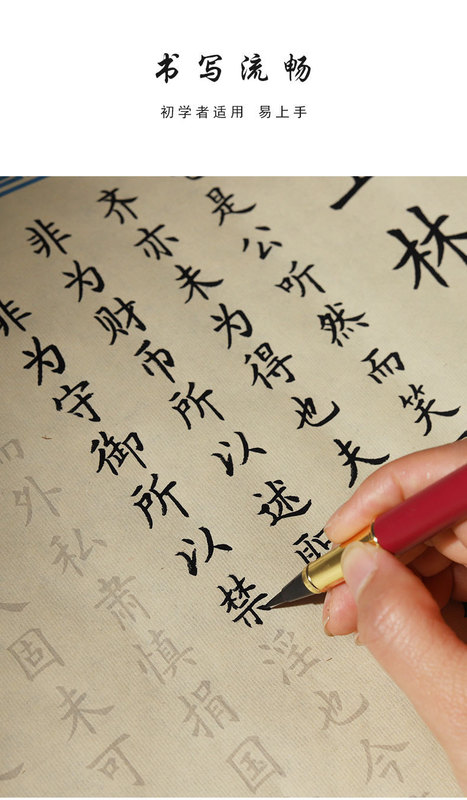 书写流畅
初学者适用 易上手
林
是公听然而笑
齐亦未为得也夫
非为财币所以述
非为守御所以禁淫也今
外私肃慎捐国
固未可